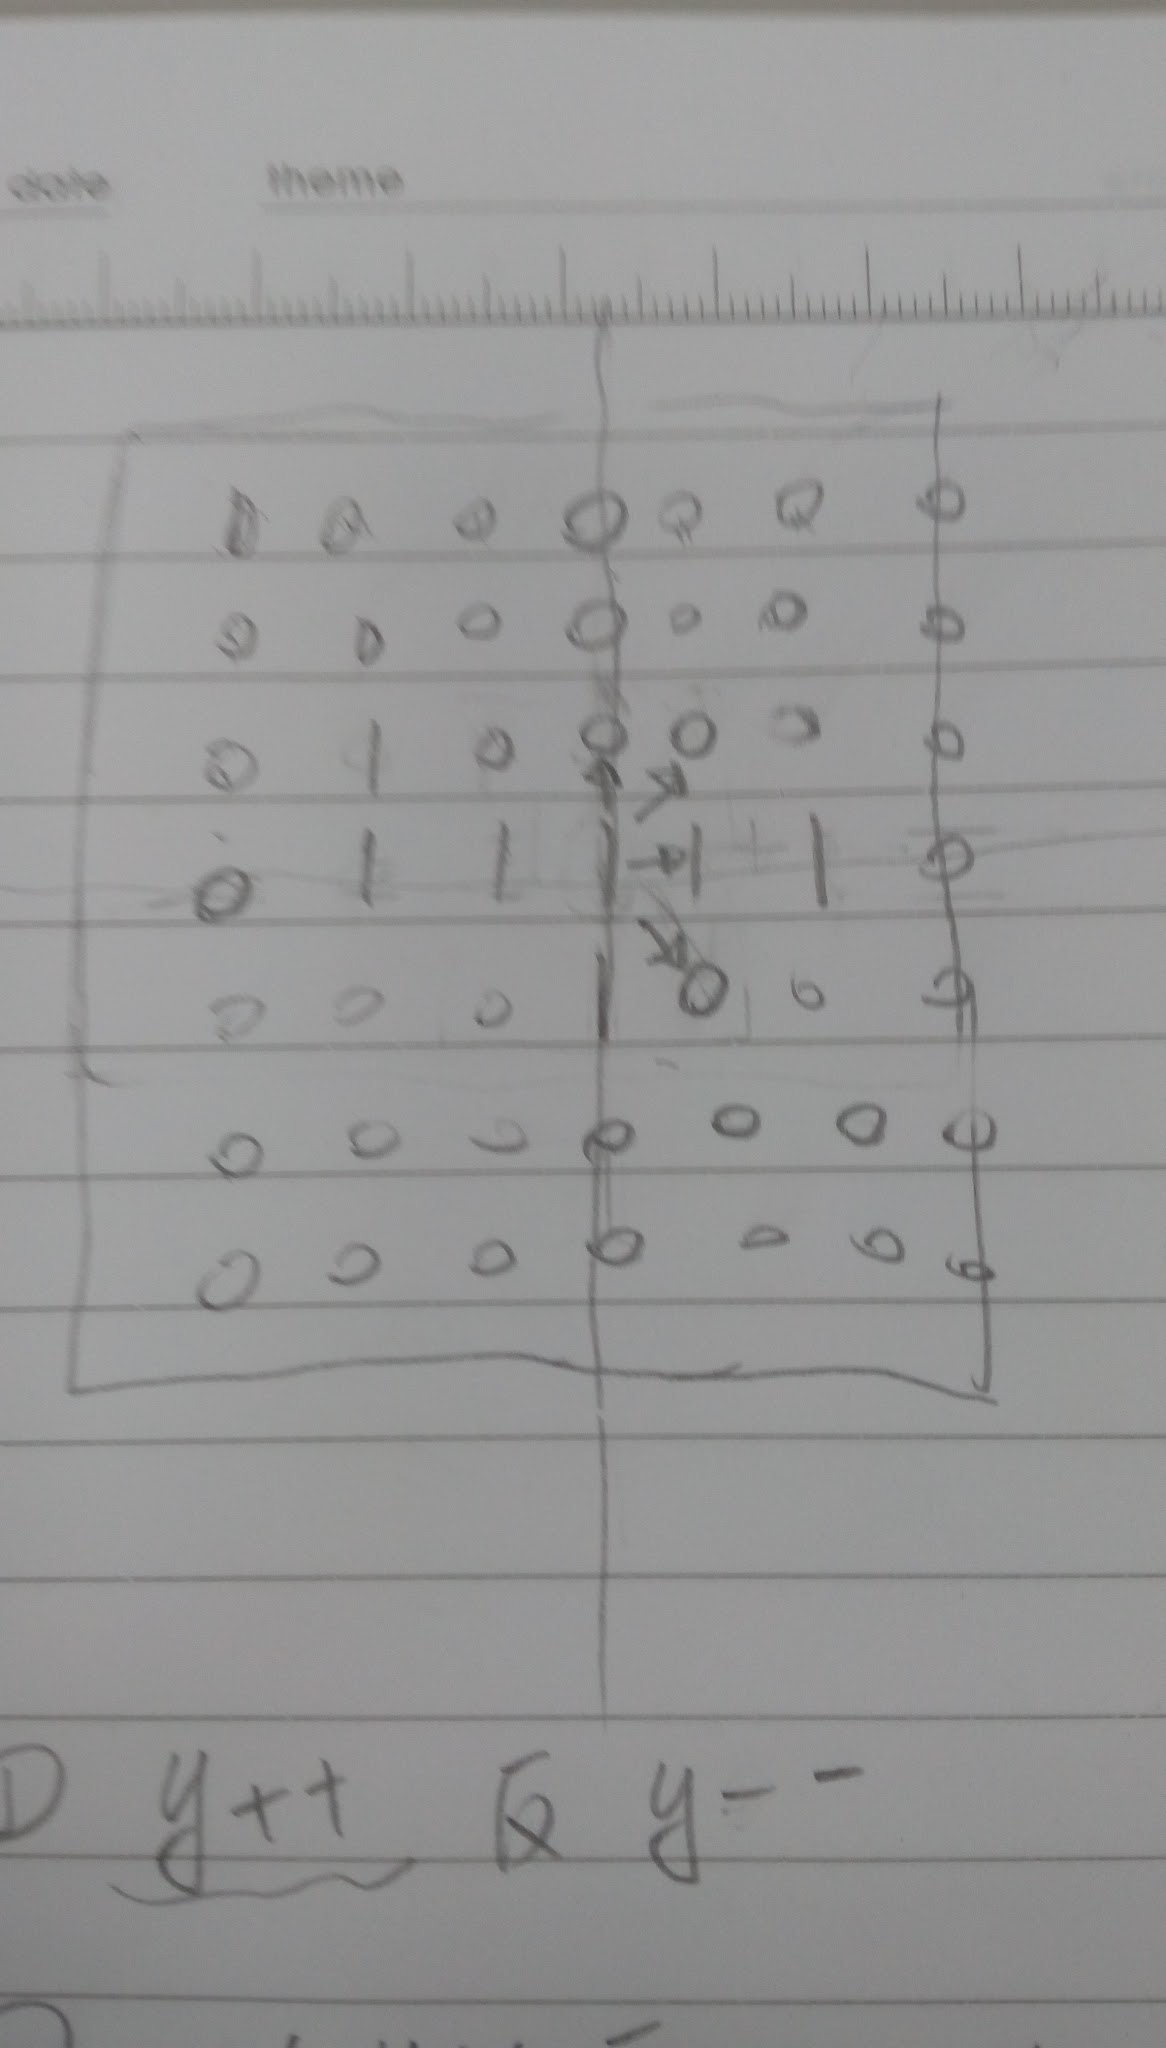 date theme
0 0 0 0 0 0 0
0 0 0 0 0 0 0
0 1 0 0 0 0 0
0 1 1 1 1 1 0
0 0 0 1 0 0 0
0 0 0 0 0 0 0
0 0 0 0 0 0 0
y++ y--